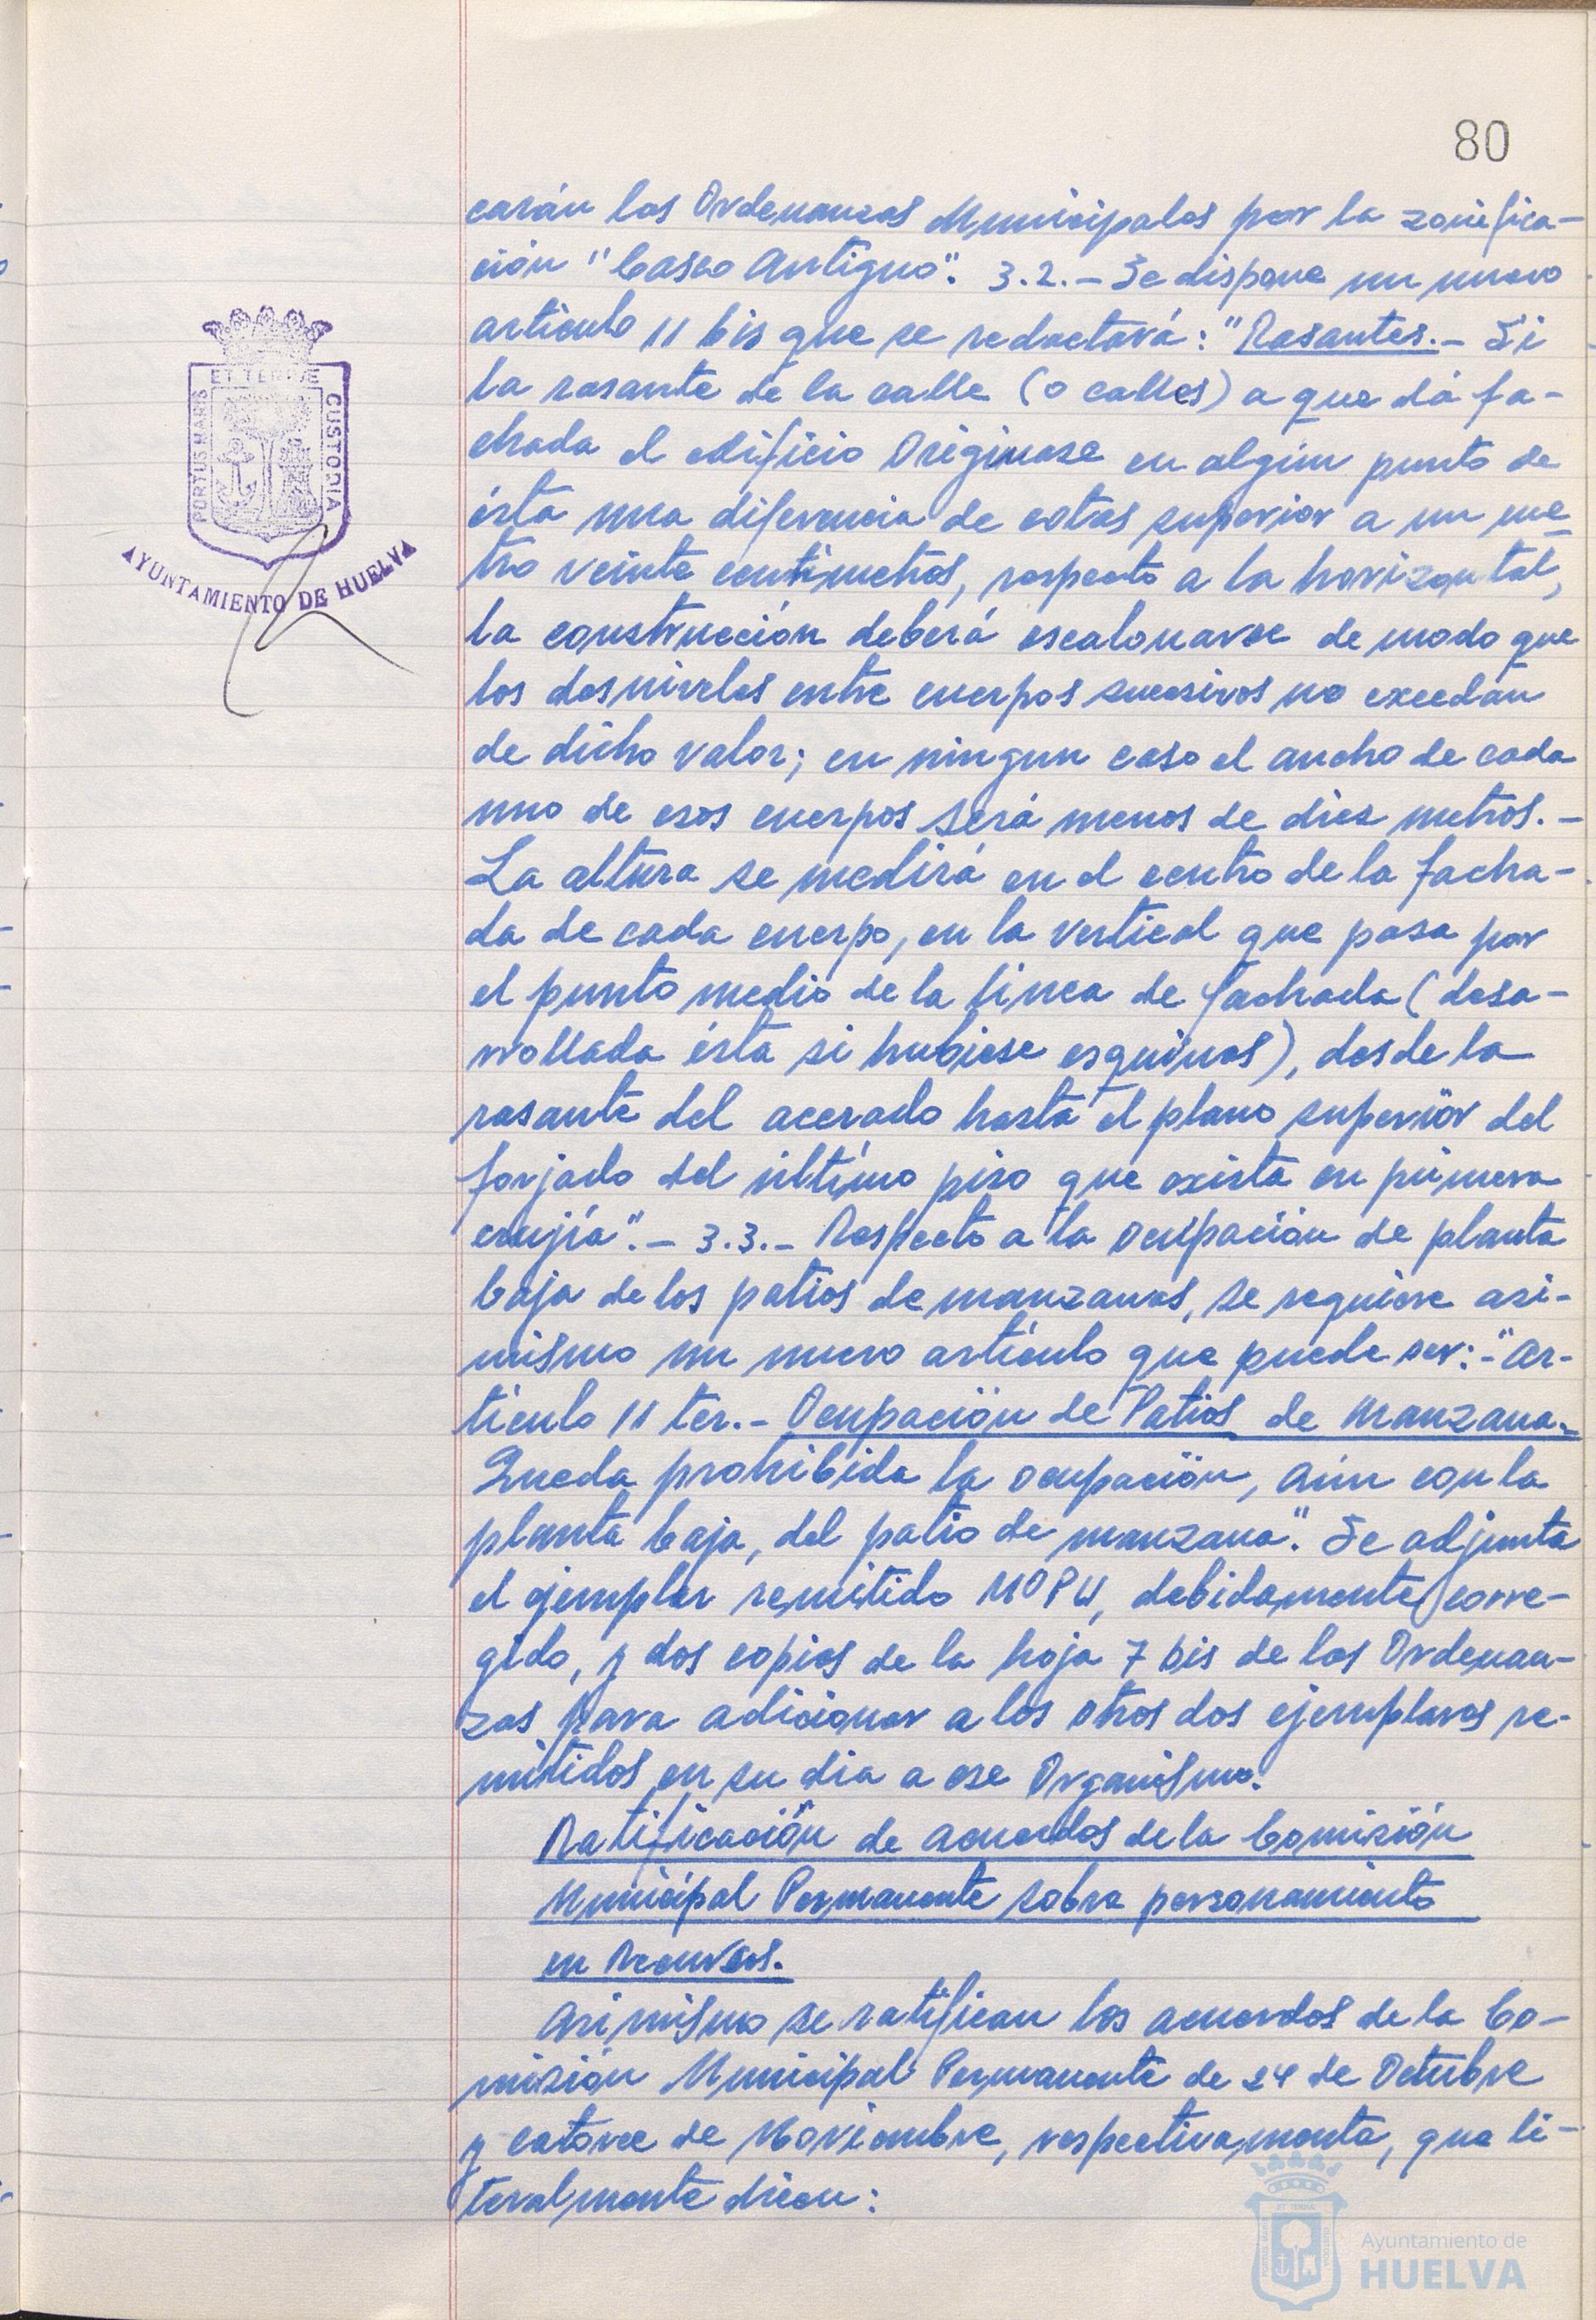 80
carán las Ordenanzas Municipales por la zonifica-
ción "Casco Antiguo". 3.2.- Se dispone un nuevo
artículo 11 bis que se redactará: "Rasantes.- Si
la rasante de la calle (o calles) a que dá fa-
chada el edificio Originase en algún punto de
ésta una diferencia de cotas superior a un me
tro veinte centímetros, respecto a la horizontal,
la construcción deberá escalonarse de modo que
los desniveles entre cuerpos sucesivos no excedan
de dicho valor; en ningun caso el ancho de cada
uno de esos cuerpos será menos de diez metros.-
La altura se medirá en el centro de la facha-
da de cada cuerpo, en la vertical que pasa por
el punto medio de la linea de fachada (desa-
rrollada ésta si hubiese esquinas), desde la
rasante del acerado hasta el plano superior del
forjado del último piso que exista en primera
crujía".- 3.3.- Respecto a la ocupación de planta
baja de los patios de manzanas, se requiere asi-
mismo un nuevo artículo que puede ser:-"Ar-
tículo 11 ter.- Ocupación de Patios de Manzana.-
Queda prohibida la ocupación, aún con la
planta baja, del patio de manzana". Se adjunta
el ejemplar remitido MOPU, debidamente corre-
gido, y dos copias de la hoja 7 bis de las Ordenan-
zas para adicionar a los otros dos ejemplares re-
mitidos en su dia a ese Organismo".
Ratificación de acuerdos de la Comisión
Municipal Permanente sobre personamiento
en Recursos.
Asimismo se ratifican los acuerdos de la Co-
misión Municipal Permanente de 24 de Octubre
y catorce de Noviembre, respectivamente, que li-
teralmente dicen:
PORTUS MARIS
ET TERRAE
CUSTODIA
AYUNTAMIENTO DE HUELVA
Ayuntamiento de
HUELVA